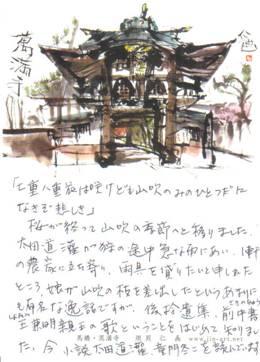 萬満寺
「七重八重花は咲けども山吹のみのひとつだに
なきぞ悲しき」
桜が終って山吹の季節へと移りました。
太田道灌が狩の途中急な雨にあい、1軒
の農家に立ち寄り、雨具を借りたいと申した
ところ娘が山吹の枝を差出したというあまりに
も有名な逸話ですが、後拾遺集、前中書
王兼明親王の歌ということをはじめて知りまし
た。今、小説太田道灌
馬橋・萬満寺
www.jin-art.net